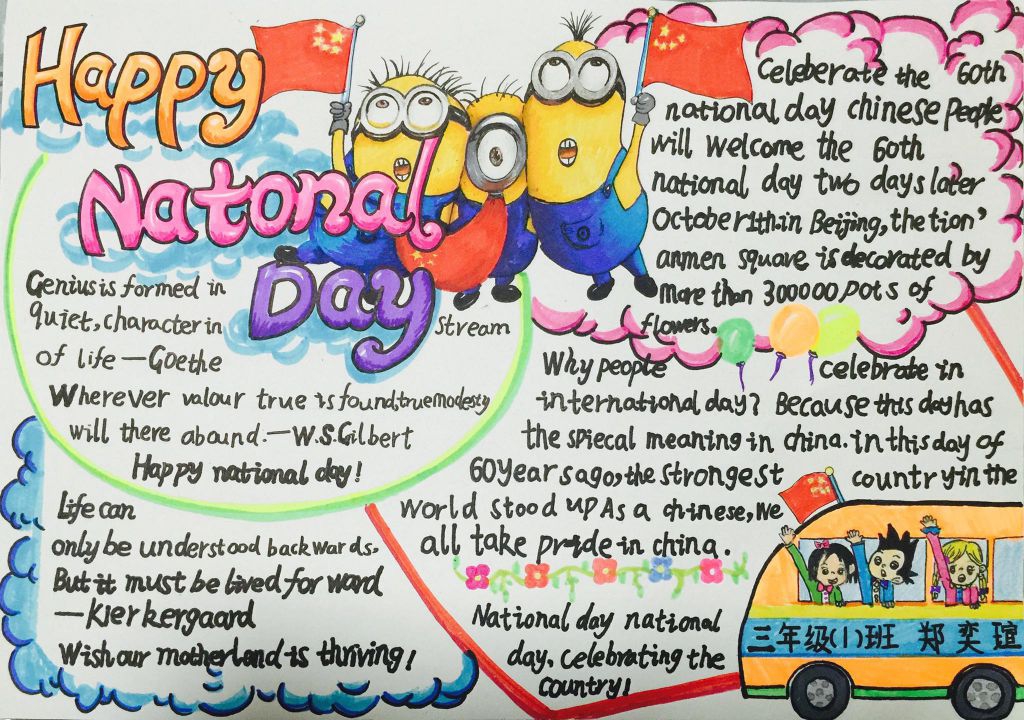 Happy
Natonal
Day
Genius is formed in
quiet, character in stream
of life — Goethe
Wherever valour true is found, true modesty
will there abound. — W.S.Gilbert
Happy national day!
Life can
only be understood backwards.
But it must be lived for ward
— Kier kergaard
Wish our motherland is thriving!
Celeberate the 60th
national day chinese People
will welcome the 60th
national day two days later
October 1th.in Beijing, the tion'
anmen square is decorated by
more than 300000 pots of
flowers.
Why people celebrate in
international day? Because this day has
the spiecal meaning in china. in this day of
60years ago, the strongest country in the
world stood up As a chinese, We
all take pride in china.
National day national
day. celebrating the
country!
三年级(1)班 郑奕瑄